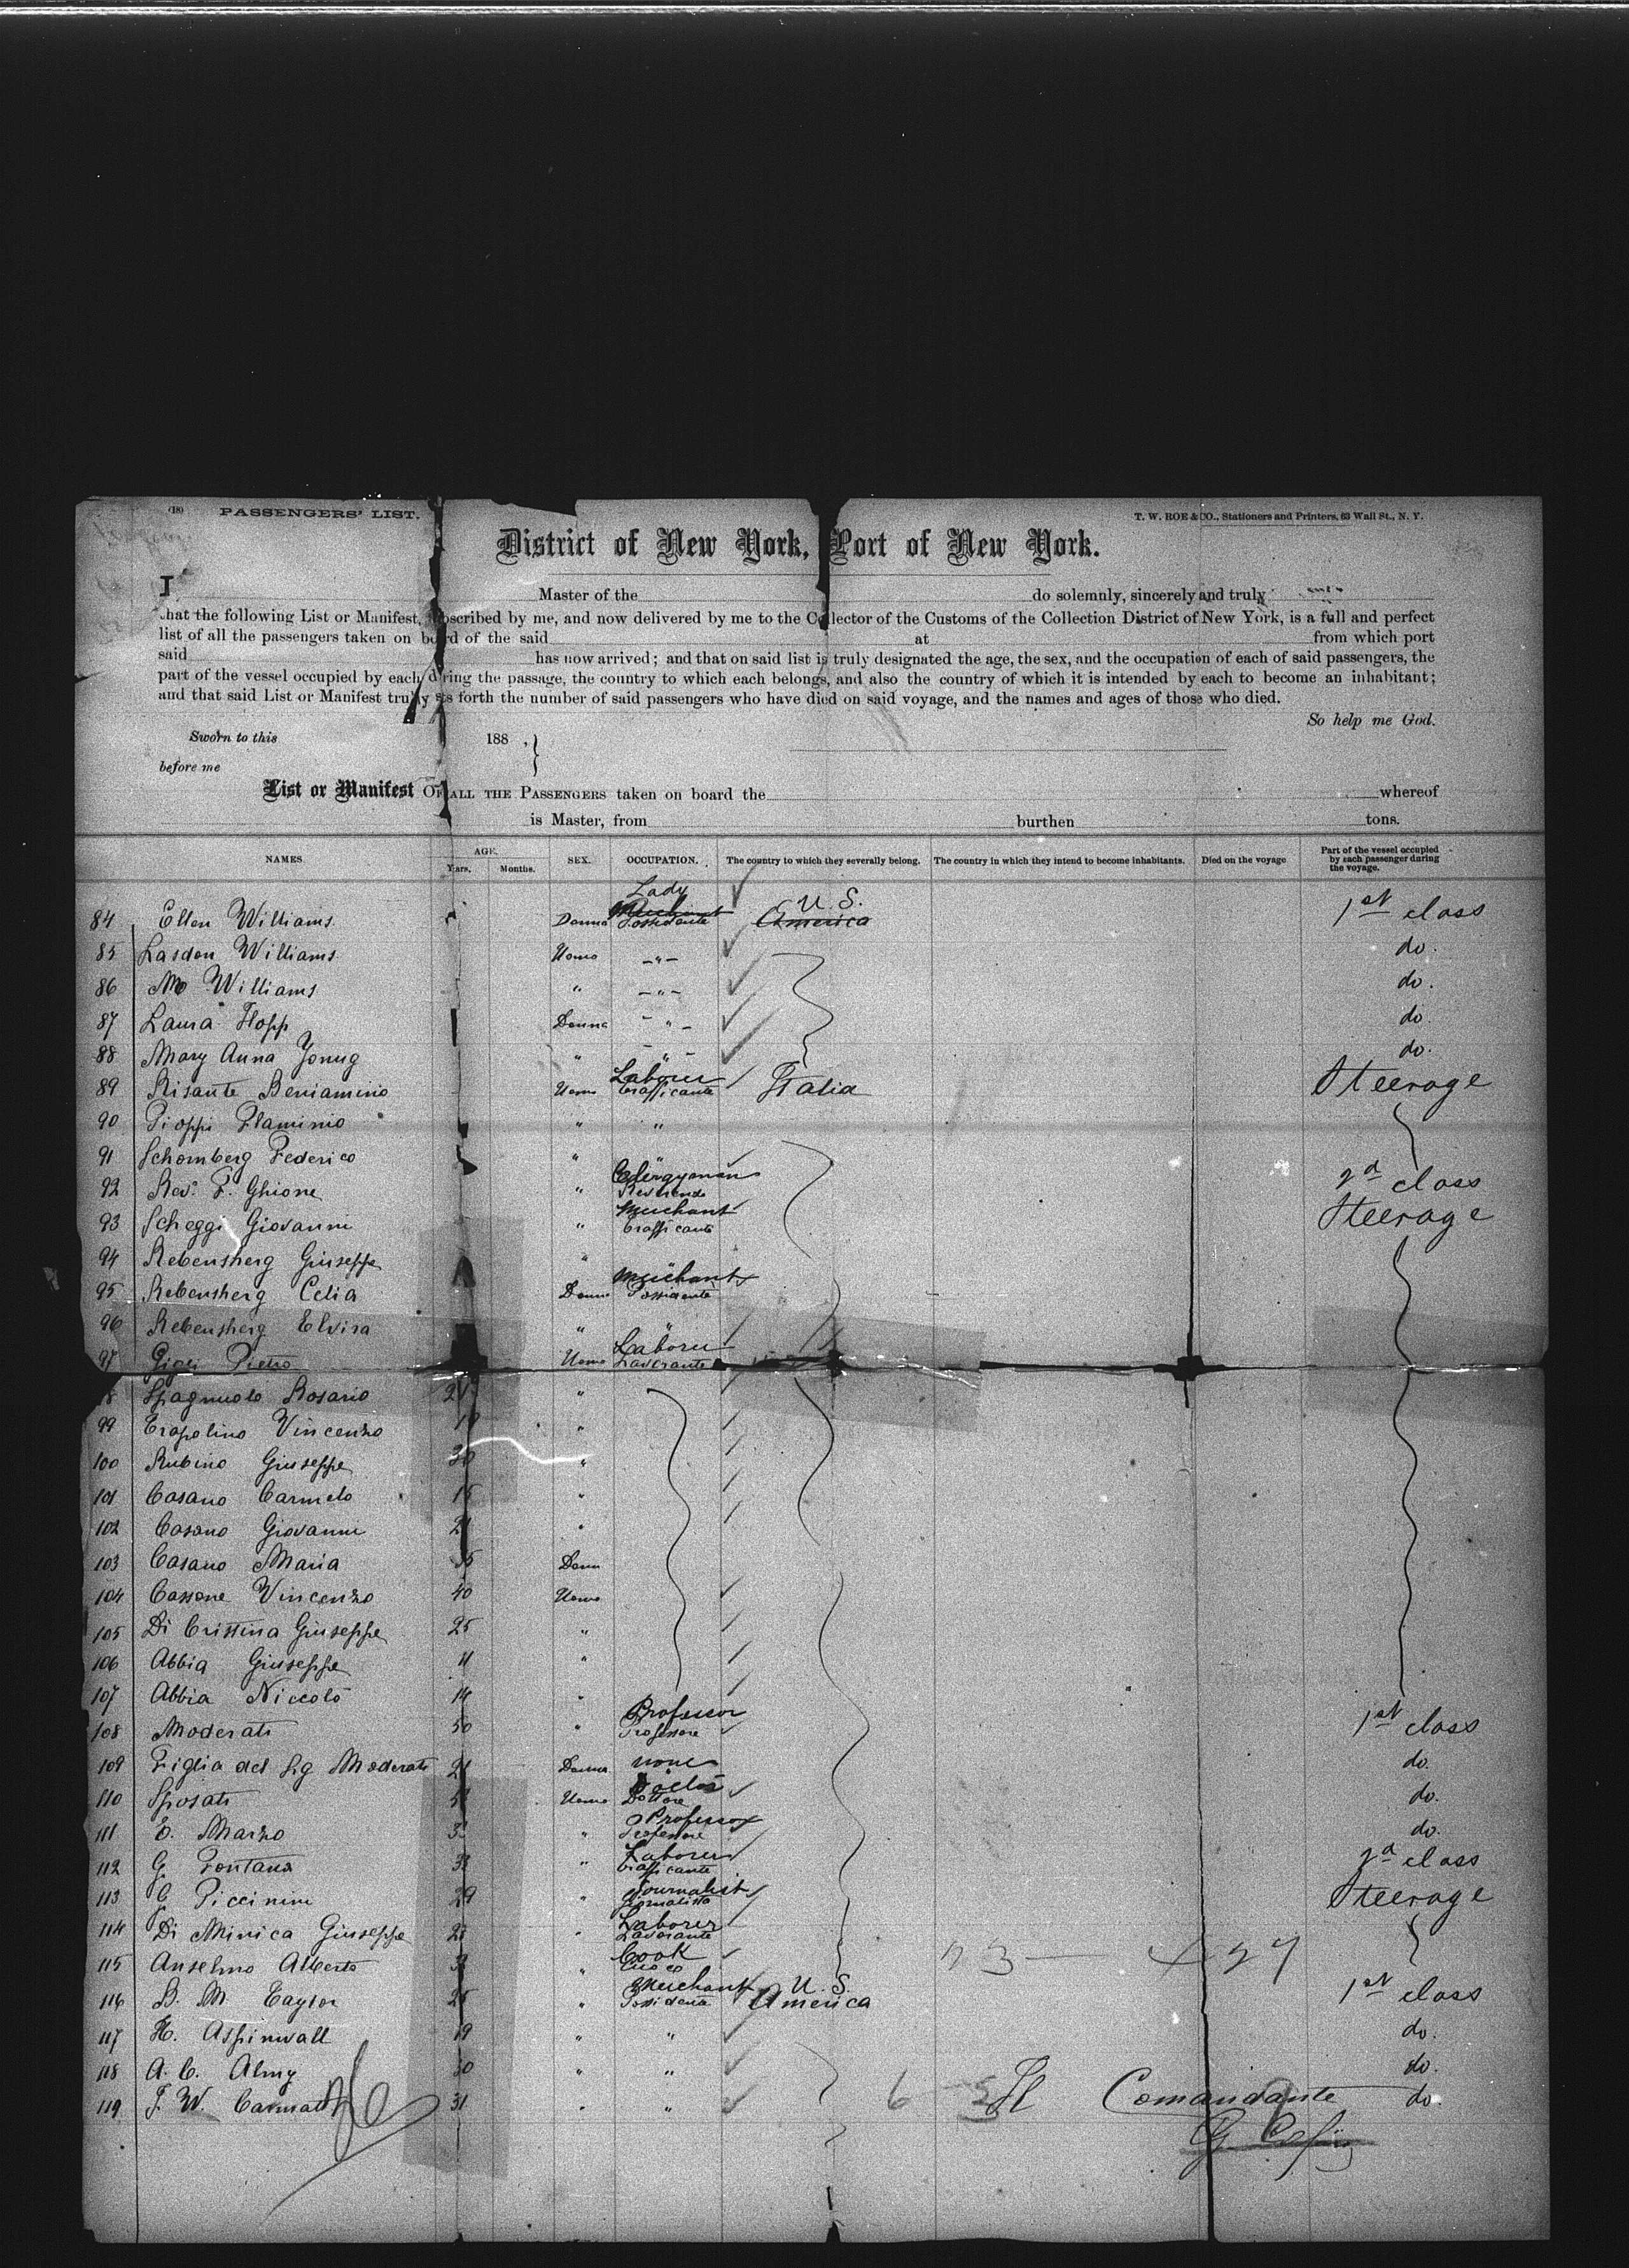 (18) PASSENGERS' LIST.
T. W. ROE & CO., Stationers and Printers, 63 Wall St., N. Y.
District of New York, Port of New York.
I Master of the do solemnly, sincerely and truly
that the following List or Manifest, subscribed by me, and now delivered by me to the Collector of the Customs of the Collection District of New York, is a full and perfect
list of all the passengers taken on board of the said at from which port
said has now arrived; and that on said list is truly designated the age, the sex, and the occupation of each of said passengers, the
part of the vessel occupied by each during the passage, the country to which each belongs, and also the country of which it is intended by each to become an inhabitant;
and that said List or Manifest truly sets forth the number of said passengers who have died on said voyage, and the names and ages of those who died.
So help me God.
Sworn to this 188 ,
before me
List or Manifest OF ALL THE PASSENGERS taken on board the whereof
is Master, from burthen tons.
NAMES. AGE. Years. Months. SEX. OCCUPATION. The country to which they severally belong. The country in which they intend to become inhabitants. Died on the voyage Part of the vessel occupied by each passenger during the voyage.
Lady
84 Ellen Williams Donna Merchant Possidente U. S. America 1st class
85 Lasdon Williams Uomo -"- do.
86 Mo Williams " -"- do.
87 Laura Hopp Donna -"- do.
88 Mary Anna Yonug " -"- do.
89 Risante Beniamino Uomo Laborer Trafficante Italia Steerage
90 Pioppi Flaminio " "
91 Schomberg Federico " "
92 Rev. F. Ghione " Clergyman Reverendo 2d class
93 Scheggi Giovanni " Merchant Trafficante Steerage
94 Rebensherg Giuseppe " "
95 Rebensherg Celia Donna Merchant Possidente
96 Rebensherg Elvira " "
97 Pietro Uomo Laborer Lavorante
98 Spagnuolo Rosario "
99 Trapolino Vincenzo "
100 Rubino Giuseppe 30 "
101 Casano Carmelo 15 "
102 Casano Giovanni "
103 Casano Maria Donn
104 Cassone Vincenzo 40 Uomo
105 Di Cristina Giuseppe 25 "
106 Abbia Giuseppe 11 "
107 Abbia Niccolò 14 "
108 Moderati 50 " Professor Professore 1st class
109 Figlia del Sig Moderati Donna none do.
110 Sposati Uomo Doctor Dottore do.
111 E. Marzo " Professor Professore do.
112 G. Fontana " Laborer Trafficante 2d class
113 C. Piccinini 29 " Journalist Giornalista Steerage
114 Di Minica Giuseppe " Laborer Lavorante
115 Anselmo Alberto " Cook Cuoco
116 B. M. Taylor 25 " Merchant Possidente U. S. America 1st class
117 H. Aspinwall 19 " " do.
118 A. C. Almy 30 " " do.
119 J. W. 31 " " do.
Il Comandante